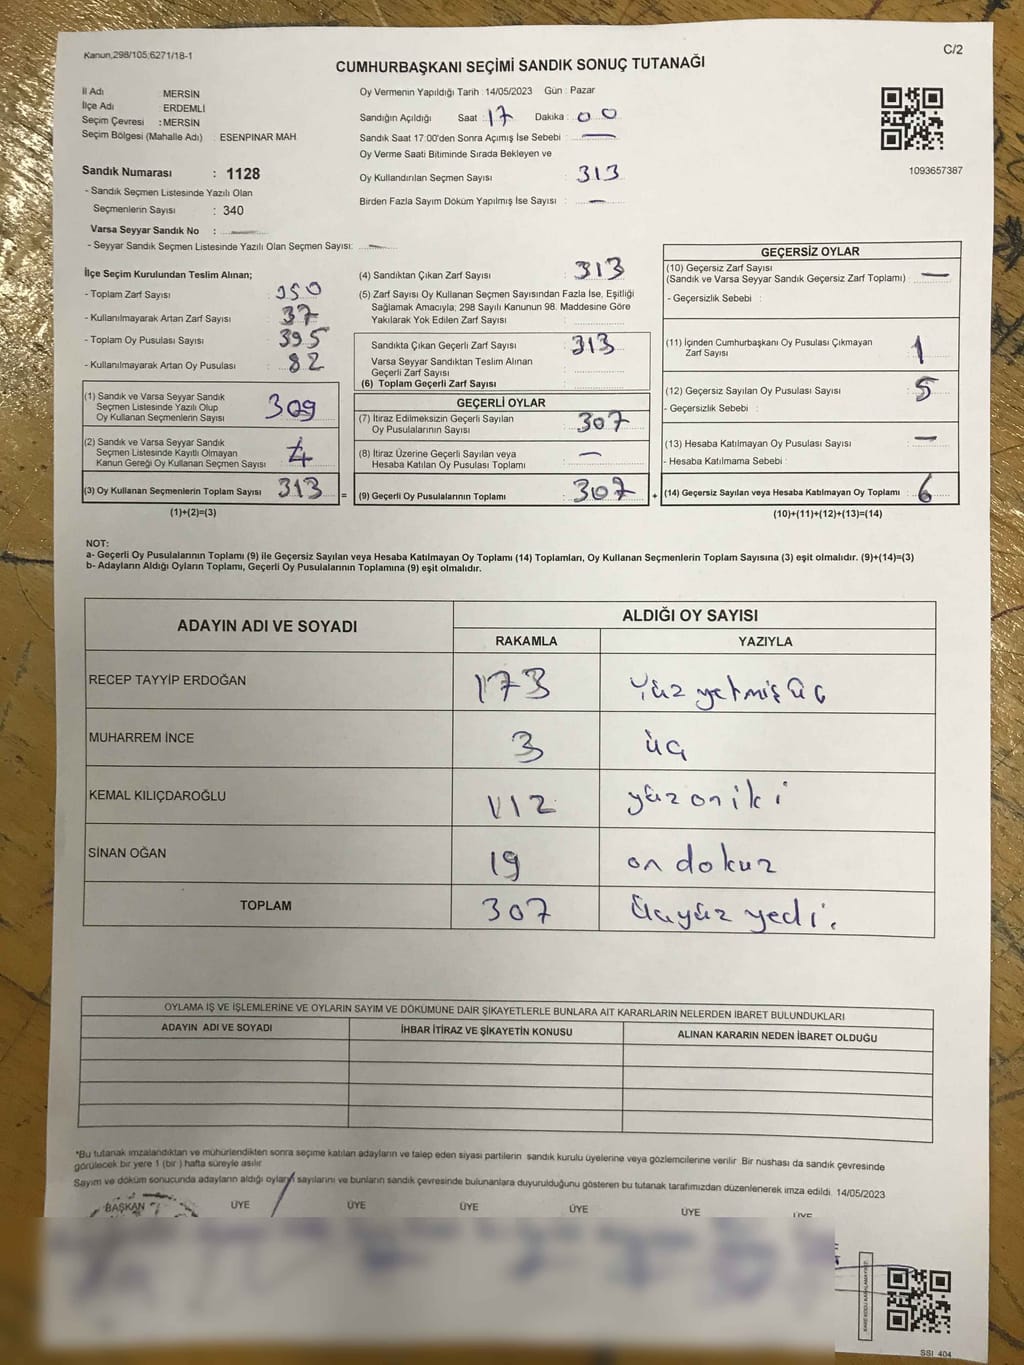 Kanun,298/105;6271/18-1
C/2
CUMHURBAŞKANI SEÇİMİ SANDIK SONUÇ TUTANAĞI
İl Adı MERSİN
İlçe Adı ERDEMLİ
Seçim Çevresi : MERSİN
Seçim Bölgesi (Mahalle Adı) : ESENPINAR MAH.
Oy Vermenin Yapıldığı Tarih : 14/05/2023 Gün : Pazar
Sandığın Açıldığı Saat : 17 Dakika : 00
Sandık Saat 17:00'den Sonra Açımış İse Sebebi : —
Oy Verme Saati Bitiminde Sırada Bekleyen ve
Oy Kullandırılan Seçmen Sayısı : 313
Birden Fazla Sayım Döküm Yapılmış İse Sayısı : —
1093657387
Sandık Numarası : 1128
- Sandık Seçmen Listesinde Yazılı Olan
Seçmenlerin Sayısı : 340
Varsa Seyyar Sandık No : —
- Seyyar Sandık Seçmen Listesinde Yazılı Olan Seçmen Sayısı: —
İlçe Seçim Kurulundan Teslim Alınan;
- Toplam Zarf Sayısı : 350
- Kullanılmayarak Artan Zarf Sayısı : 37
- Toplam Oy Pusulası Sayısı : 395
- Kullanılmayarak Artan Oy Pusulası : 82
(1) Sandık ve Varsa Seyyar Sandık
Seçmen Listesinde Yazılı Olup
Oy Kullanan Seçmenlerin Sayısı : 309
(2) Sandık ve Varsa Seyyar Sandık
Seçmen Listesinde Kayıtlı Olmayan
Kanun Gereği Oy Kullanan Seçmen Sayısı : 4
(3) Oy Kullanan Seçmenlerin Toplam Sayısı : 313
(1)+(2)=(3)
(4) Sandıktan Çıkan Zarf Sayısı : 313
(5) Zarf Sayısı Oy Kullanan Seçmen Sayısından Fazla İse, Eşitliği
Sağlamak Amacıyla; 298 Sayılı Kanunun 98. Maddesine Göre
Yakılarak Yok Edilen Zarf Sayısı :
Sandıkta Çıkan Geçerli Zarf Sayısı : 313
Varsa Seyyar Sandıktan Teslim Alınan
Geçerli Zarf Sayısı :
(6) Toplam Geçerli Zarf Sayısı :
GEÇERLİ OYLAR
(7) İtiraz Edilmeksizin Geçerli Sayılan
Oy Pusulalarının Sayısı : 307
(8) İtiraz Üzerine Geçerli Sayılan veya
Hesaba Katılan Oy Pusulası Toplamı : —
= (9) Geçerli Oy Pusulalarının Toplamı : 307
GEÇERSİZ OYLAR
(10) Geçersiz Zarf Sayısı
(Sandık ve Varsa Seyyar Sandık Geçersiz Zarf Toplamı) : —
- Geçersizlik Sebebi :
(11) İçinden Cumhurbaşkanı Oy Pusulası Çıkmayan
Zarf Sayısı : 1
(12) Geçersiz Sayılan Oy Pusulası Sayısı : 5
- Geçersizlik Sebebi :
(13) Hesaba Katılmayan Oy Pusulası Sayısı : —
- Hesaba Katılmama Sebebi :
+ (14) Geçersiz Sayılan veya Hesaba Katılmayan Oy Toplamı : 6
(10)+(11)+(12)+(13)=(14)
NOT:
a- Geçerli Oy Pusulalarının Toplamı (9) ile Geçersiz Sayılan veya Hesaba Katılmayan Oy Toplamı (14) Toplamları, Oy Kullanan Seçmenlerin Toplam Sayısına (3) eşit olmalıdır. (9)+(14)=(3)
b- Adayların Aldığı Oyların Toplamı, Geçerli Oy Pusulalarının Toplamına (9) eşit olmalıdır.
ADAYIN ADI VE SOYADI ALDIĞI OY SAYISI
RAKAMLA YAZIYLA
RECEP TAYYİP ERDOĞAN 173 Yüz yetmiş üç
MUHARREM İNCE 3 üç
KEMAL KILIÇDAROĞLU 112 yüz on iki
SİNAN OĞAN 19 on dokuz
TOPLAM 307 üçyüz yedi.
OYLAMA İŞ VE İŞLEMLERİNE VE OYLARIN SAYIM VE DÖKÜMÜNE DAİR ŞİKAYETLERLE BUNLARA AİT KARARLARIN NELERDEN İBARET BULUNDUKLARI
ADAYIN ADI VE SOYADI İHBAR İTİRAZ VE ŞİKAYETİN KONUSU ALINAN KARARIN NEDEN İBARET OLDUĞU
*Bu tutanak imzalandıktan ve mühürlendikten sonra seçime katılan adayların ve talep eden siyasi partilerin sandık kurulu üyelerine veya gözlemcilerine verilir. Bir nüshası da sandık çevresinde
görülecek bir yere 1 (bir ) hafta süreyle asılır
Sayım ve döküm sonucunda adayların aldığı oyların sayılarını ve bunların sandık çevresinde bulunanlara duyurulduğunu gösteren bu tutanak tarafımızdan düzenlenerek imza edildi. 14/05/2023
BAŞKAN ÜYE ÜYE ÜYE ÜYE ÜYE ÜYE
SSI_404